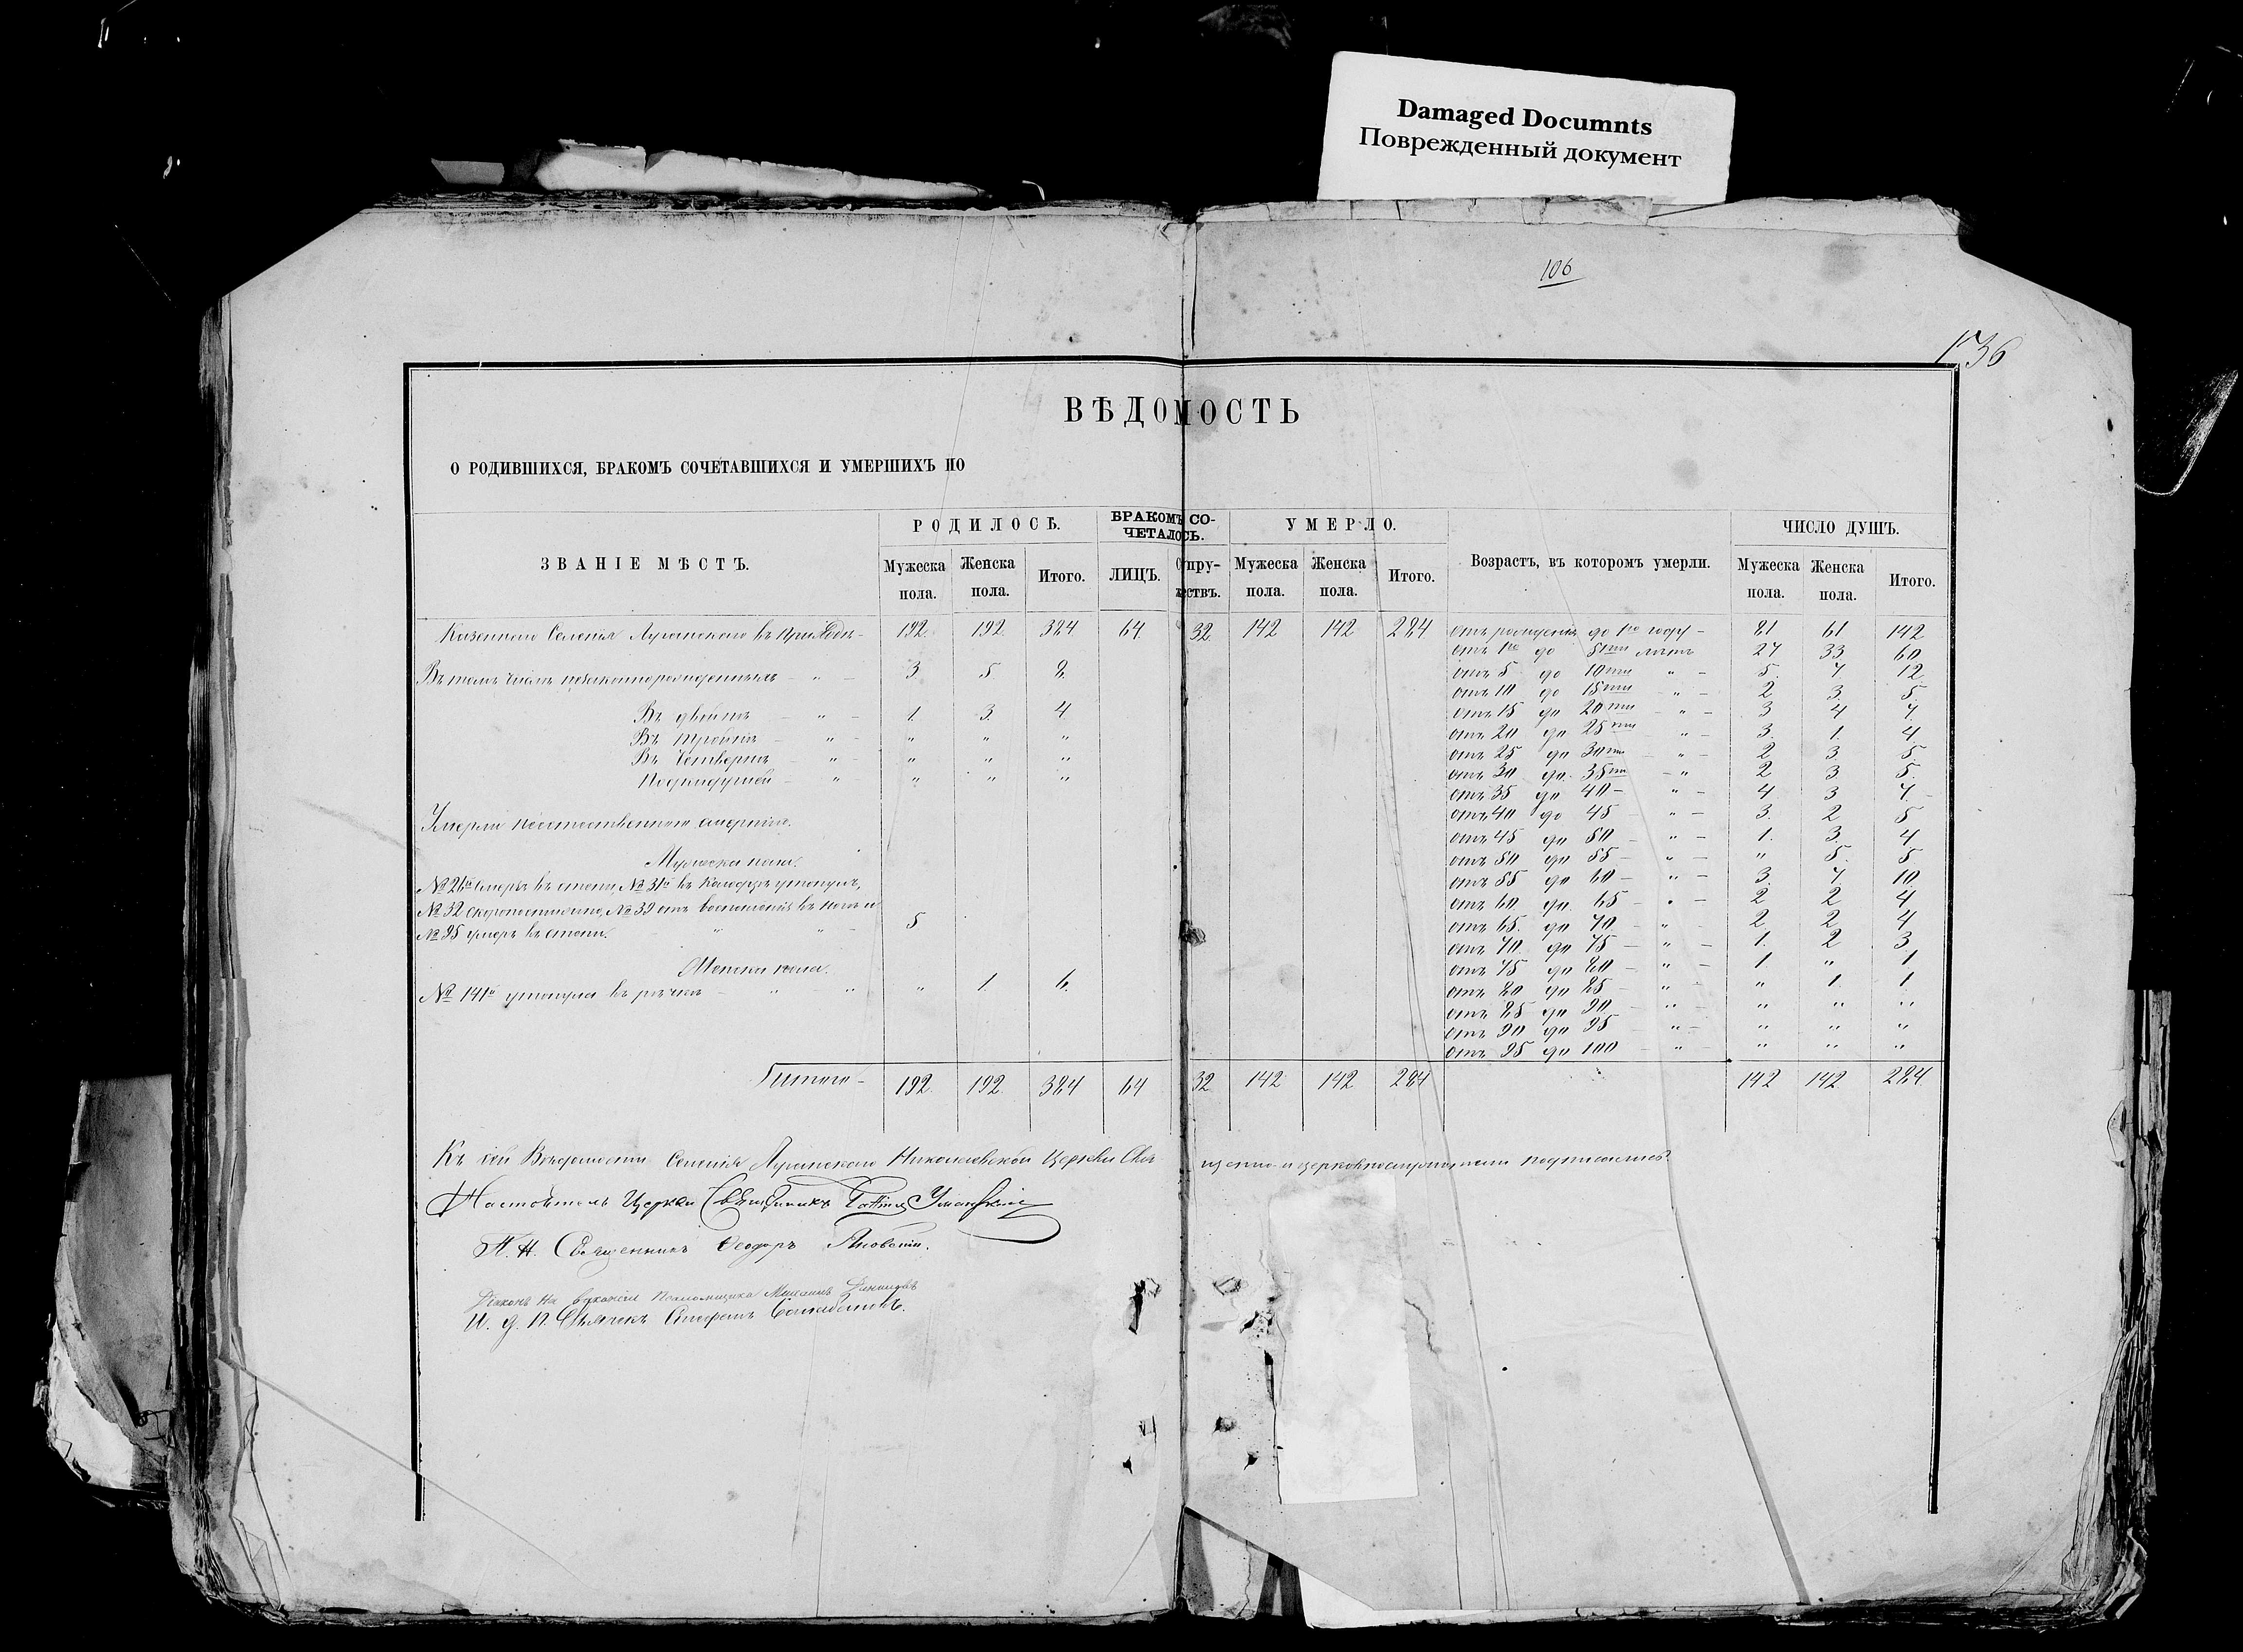 Damaged Documnts
Поврежденный документ
106
136
ВѢДОМОСТЬ
О РОДИВШИХСЯ, БРАКОМЪ СОЧЕТАВШИХСЯ И УМЕРШИХЪ ПО
ЗВАНІЕ МѢСТЪ. РОДИЛОСѢ. БРАКОМЪ СО-ЧЕТАЛОСЬ. УМЕРЛО. Возрастъ, въ которомъ умерли. ЧИСЛО ДУШЪ.
Мужеска пола. Женска пола. Итого. ЛИЦЪ. Супру-жествъ. Мужеска пола. Женска пола. Итого. Мужеска пола. Женска пола. Итого.
Казеннаго Селенія Луганскаго въ приходѣ - 192 192 384 64 32 142 142 284 отъ рожденія до 1го году - 81 61 142
отъ 1го до 5ти лѣтъ 27 33 60
Въ томъ числѣ незаконнорожденныхъ - " - 3 5 8 отъ 5 до 10ти " - 5 7 12
отъ 10 до 15ти - " - 2 3 5
Въ двойнѣ - " - 1 3 4 отъ 15 до 20ти - " - 3 4 7
Въ тройнѣ - " - " " " отъ 20 до 25ти " - 3 1 4
Въ четвернѣ - " - " " " отъ 25 до 30ти - " - 2 3 5
Подкидушей - " - " " " отъ 30 до 35ти - " 2 3 5
отъ 35 до 40 - " - 4 3 7
Умерли неестественною смертію. отъ 40 до 45 - " - 3 2 5
отъ 45 до 50 - " - 1 3 4
Мужеска пола. отъ 50 до 55 - " - " 5 5
№ 26й умеръ въ степи, № 31й въ колодцѣ утонулъ, отъ 55 до 60 - " - 3 7 10
№ 32 скоропостижно, № 39 отъ воспаленія въ отъ 60 до 65 - " - 2 2 4
№ 95 умеръ въ степи. " " - 5 отъ 65 до 70 - " - 2 2 4
отъ 70 до 75 - " - 1 2 3
Женска пола. отъ 75 до 80 - " - 1 " 1
№ 141й утонула въ рѣчкѣ - " " " 1 6 отъ 80 до 85 - " - " 1 1
отъ 85 до 90 - " - " " "
отъ 90 до 95 - " - " " "
отъ 95 до 100 - " - " " "
Итого - 192 192 384 64 32 142 142 284 142 142 284
Къ сей Вѣдомости Селенія Луганскаго Николаевской Церкви Свя щенно-и церковнослужители подписались:
Настоятель Церкви Священникъ Уманскій
П. Н. Священникъ Ѳеодоръ Яновскій.
Діаконъ на вакансіи псаломщика Михаилъ
И. д. П. Дьячекъ Стефанъ